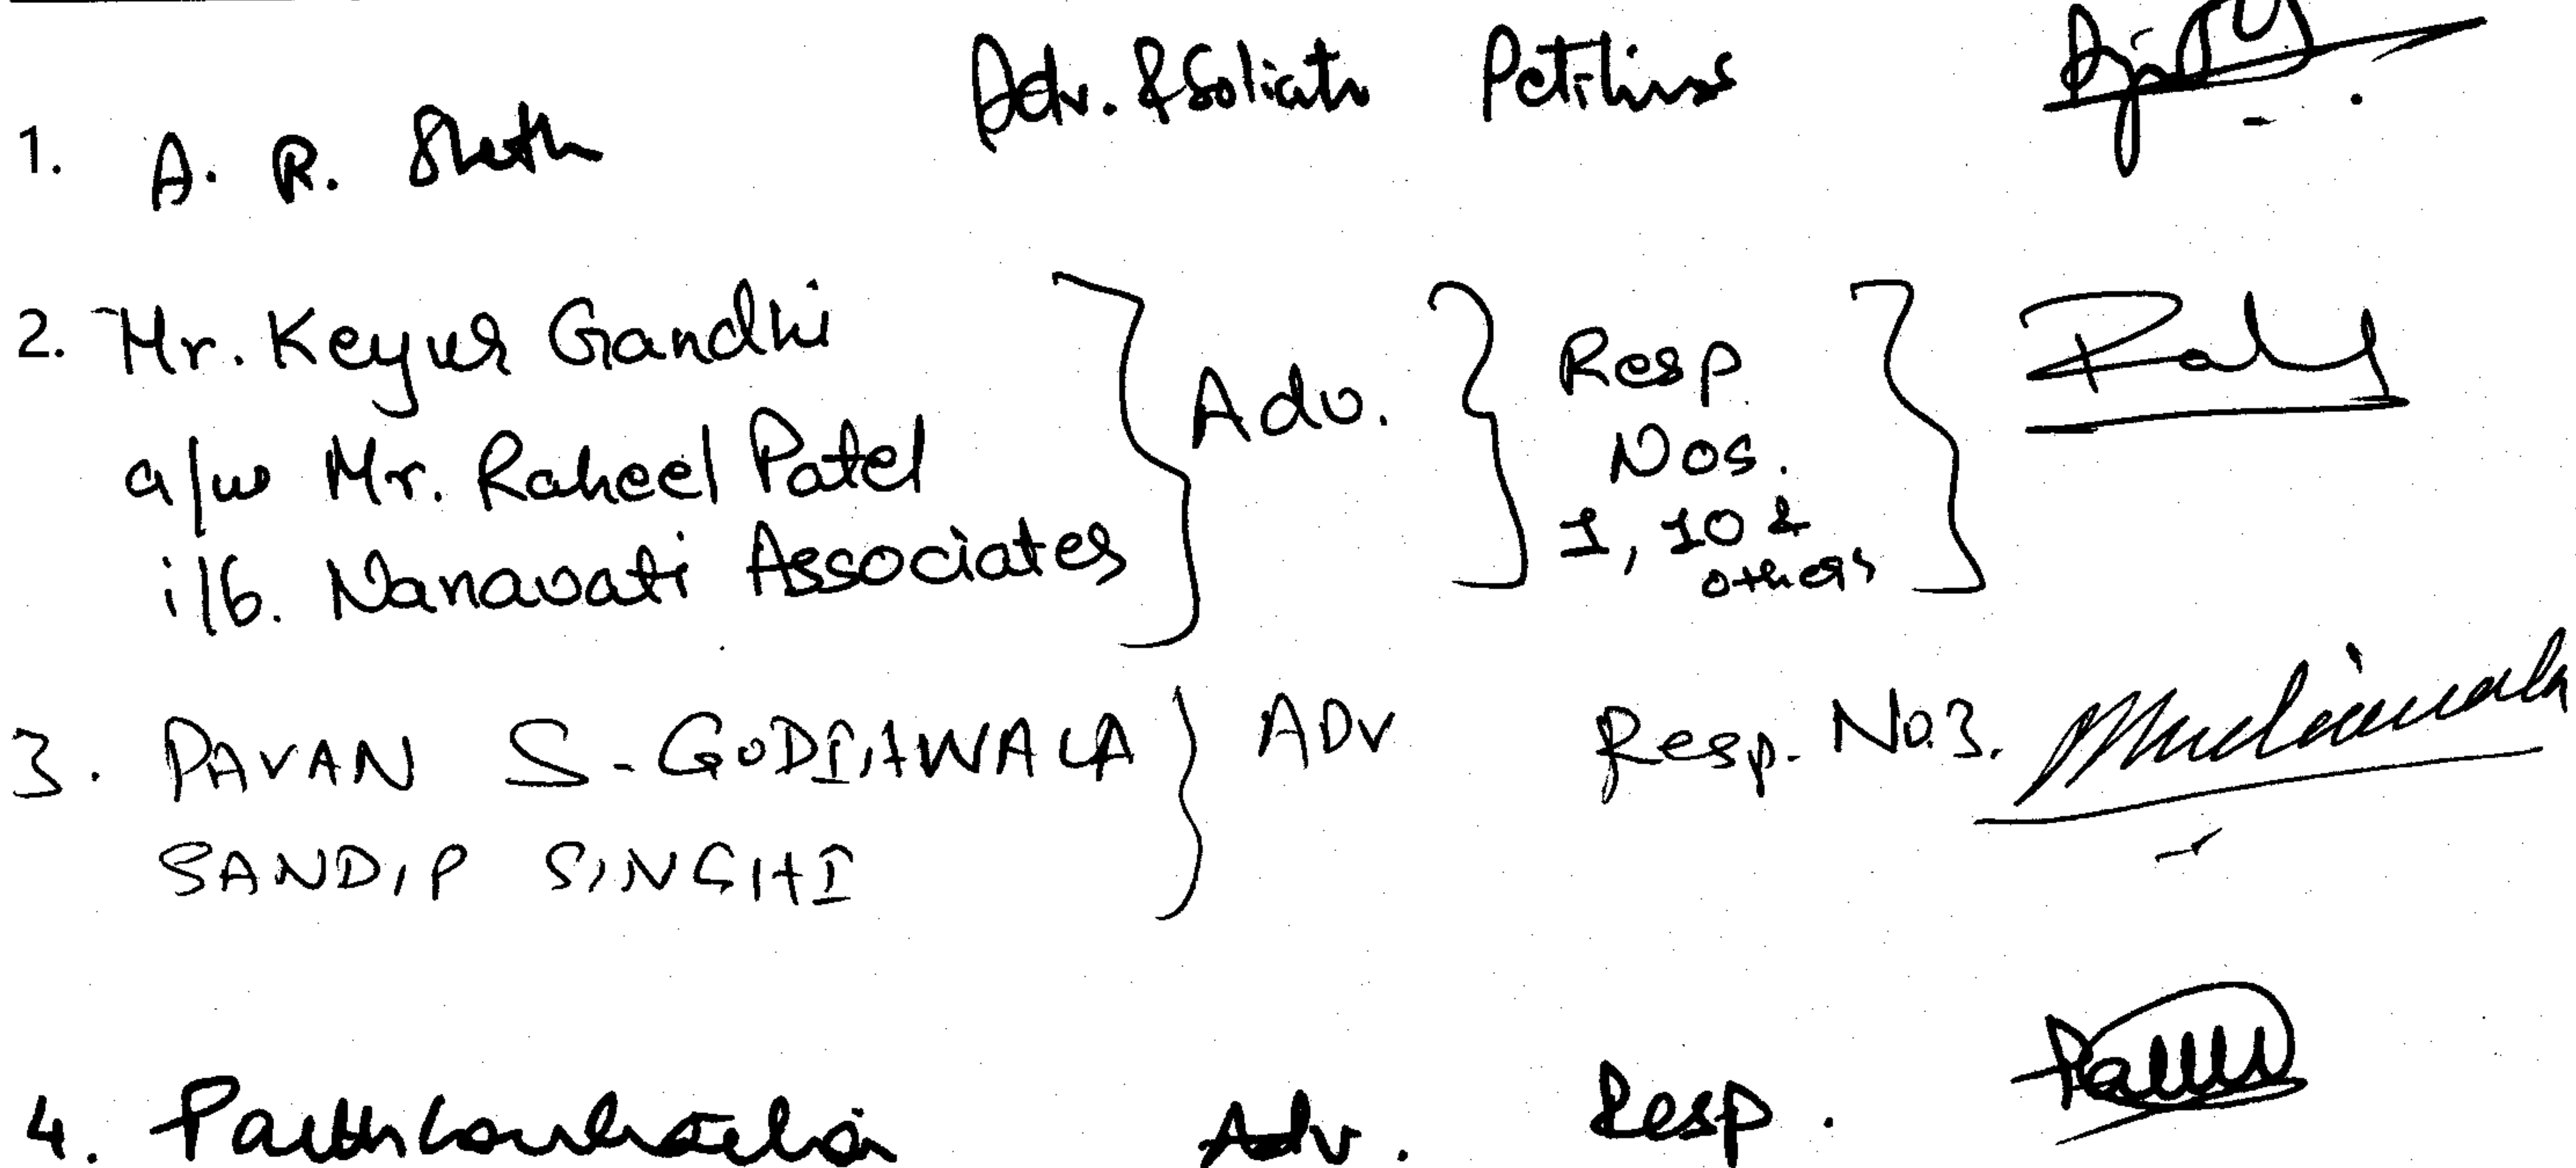 1. A. R. Sheth Adv. & Solicitor Petitioners
2. Mr. Keyur Gandhi
a/w Mr. Raheel Patel
i/b. Nanavati Associates
Adv.
Resp
Nos.
1, 10 &
others
3. PAVAN S. GODIAWALA ADV Resp. No. 3.
SANDIP SINGHI
4. Parth Contractor Adv. Resp.